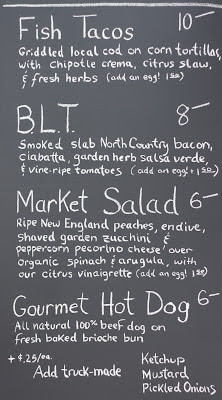 Fish Tacos 10—
Griddled local cod on corn tortillas,
with chipotle crema, citrus slaw,
& fresh herbs (add an egg! 1.50)
B.L.T. 8—
Smoked slab North Country bacon,
ciabatta, garden herb salsa verde,
& vine-ripe tomatoes (add an egg! +1.50)
Market Salad 6—
Ripe New England peaches, endive,
shaved garden zucchini &
peppercorn pecorino cheese over
organic spinach & arugula, with
our citrus vinaigrette (add an egg! 1.50)
Gourmet Hot Dog 6—
All natural 100% beef dog on
fresh baked brioche bun
+ $.25/ea. Ketchup
Add truck-made Mustard
Pickled Onions